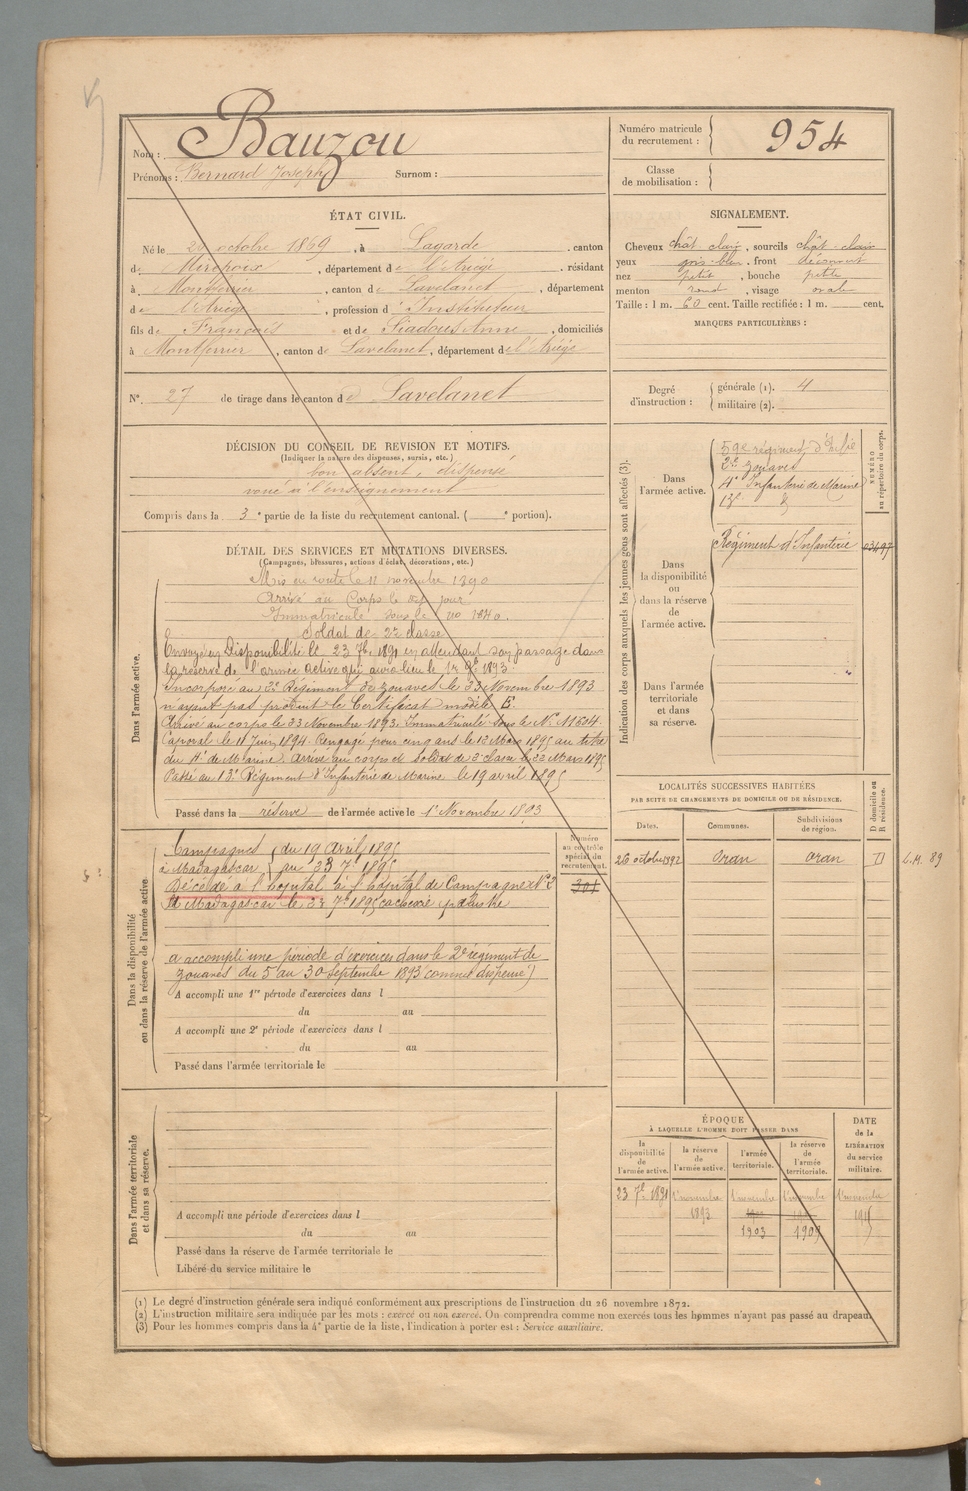 Nom : Bauzou
Prénoms : Bernard Joseph Surnom :
Numéro matricule du recrutement : 954
Classe de mobilisation :
ÉTAT CIVIL.
Né le octobre 1869, à Lagarde, canton
de Mirepoix, département de l'Ariège, résidant
à Montferrier, canton de Lavelanet, département
de l'Ariège, profession d'Instituteur
fils de François et de Siadous Anne, domiciliés
à Montferrier, canton de Lavelanet, département de l'Ariège
N°. 27 de tirage dans le canton de Lavelanet
SIGNALEMENT.
Cheveux chât. clair, sourcils chât-clair
yeux gris-bleu, front découvert
nez petit, bouche petite
menton rond, visage ovale
Taille : 1 m. 60 cent. Taille rectifiée : 1 m. cent.
MARQUES PARTICULIÈRES :
Degré d'instruction : générale (1). 4
militaire (2).
DÉCISION DU CONSEIL DE REVISION ET MOTIFS.
(Indiquer la nature des dispenses, sursis, etc.)
bon absent, dispensé
voué à l'enseignement
Compris dans la 3e partie de la liste du recrutement cantonal. ( e portion).
DÉTAIL DES SERVICES ET MUTATIONS DIVERSES.
(Campagnes, blessures, actions d'éclat, décorations, etc.)
Dans l'armée active.
Mis en route le 11 novembre 1890
Arrivé au Corps le dit jour
Immatriculé sous le no 1840.
Soldat de 2e classe
Envoyé en Disponibilité le 23 7bre 1891 en attendant son passage dans
la réserve de l'armée active qui aura lieu le 1er 9bre 1893.
Incorporé au 2e Régiment de zouaves le 23 Novembre 1893
n'ayant pas produit le Certificat modèle E.
Arrivé au corps le 23 Novembre 1893. Immatriculé sous le No 11604.
Caporal le 11 Juin 1894. Rengagé pour cinq ans le 12 Mars 1895 au titre
du 4e de Marine. Arrivé au corps et Soldat de 2e classe le 22 Mars 1895
Passé au 13e Régiment d'Infanterie de Marine le 19 avril 1895
Passé dans la réserve de l'armée active le 1er Novembre 1893
Dans la disponibilité ou dans la réserve de l'armée active
Numéro au contrôle spécial du recrutement. 301
Campagnes du 19 Avril 1895
à Madagascar au 23 7bre 1895
Décédé à l'hôpital à l'hôpital de Campagne No 2
Madagascar le 23 7bre 1895 cachexie palustre
a accompli une période d'exercices dans le 2e régiment de
zouaves du 3 au 30 Septembre 1893 (comme dispensé)
A accompli une 1re période d'exercices dans l
du au
A accompli une 2e période d'exercices dans l
du au
Passé dans l'armée territoriale le
Dans l'armée territoriale et dans sa réserve.
A accompli une période d'exercices dans l
du au
Passé dans la réserve de l'armée territoriale le
Libéré du service militaire le
Indication des corps auxquels les jeunes gens sont affectés (3).
NUMÉRO au répertoire du corps.
Dans l'armée active.
59e régiment d'Infie
2e zouaves
4e Infanterie de Marine
13e
Dans la disponibilité ou dans la réserve de l'armée active.
Régiment d'Infanterie
Dans l'armée territoriale et dans sa réserve.
LOCALITÉS SUCCESSIVES HABITÉES
PAR SUITE DE CHANGEMENTS DE DOMICILE OU DE RÉSIDENCE.
Dates. Communes. Subdivisions de région. D domicile ou R résidence.
20 octobre 1892 Oran Oran D L.M. 89
ÉPOQUE
À LAQUELLE L'HOMME DOIT PASSER DANS
la disponibilité de l'armée active. la réserve de l'armée active. l'armée territoriale. la réserve de l'armée territoriale.
DATE de la LIBÉRATION du service militaire.
23 7bre 1891 1er novembre 1893 1er novembre 1903 1er novembre 1909 1er novembre 1915
(1) Le degré d'instruction générale sera indiqué conformément aux prescriptions de l'instruction du 26 novembre 1872.
(2) L'instruction militaire sera indiquée par les mots : exercé ou non exercé. On comprendra comme non exercés tous les hommes n'ayant pas passé au drapeau.
(3) Pour les hommes compris dans la 4e partie de la liste, l'indication à porter est : Service auxiliaire.